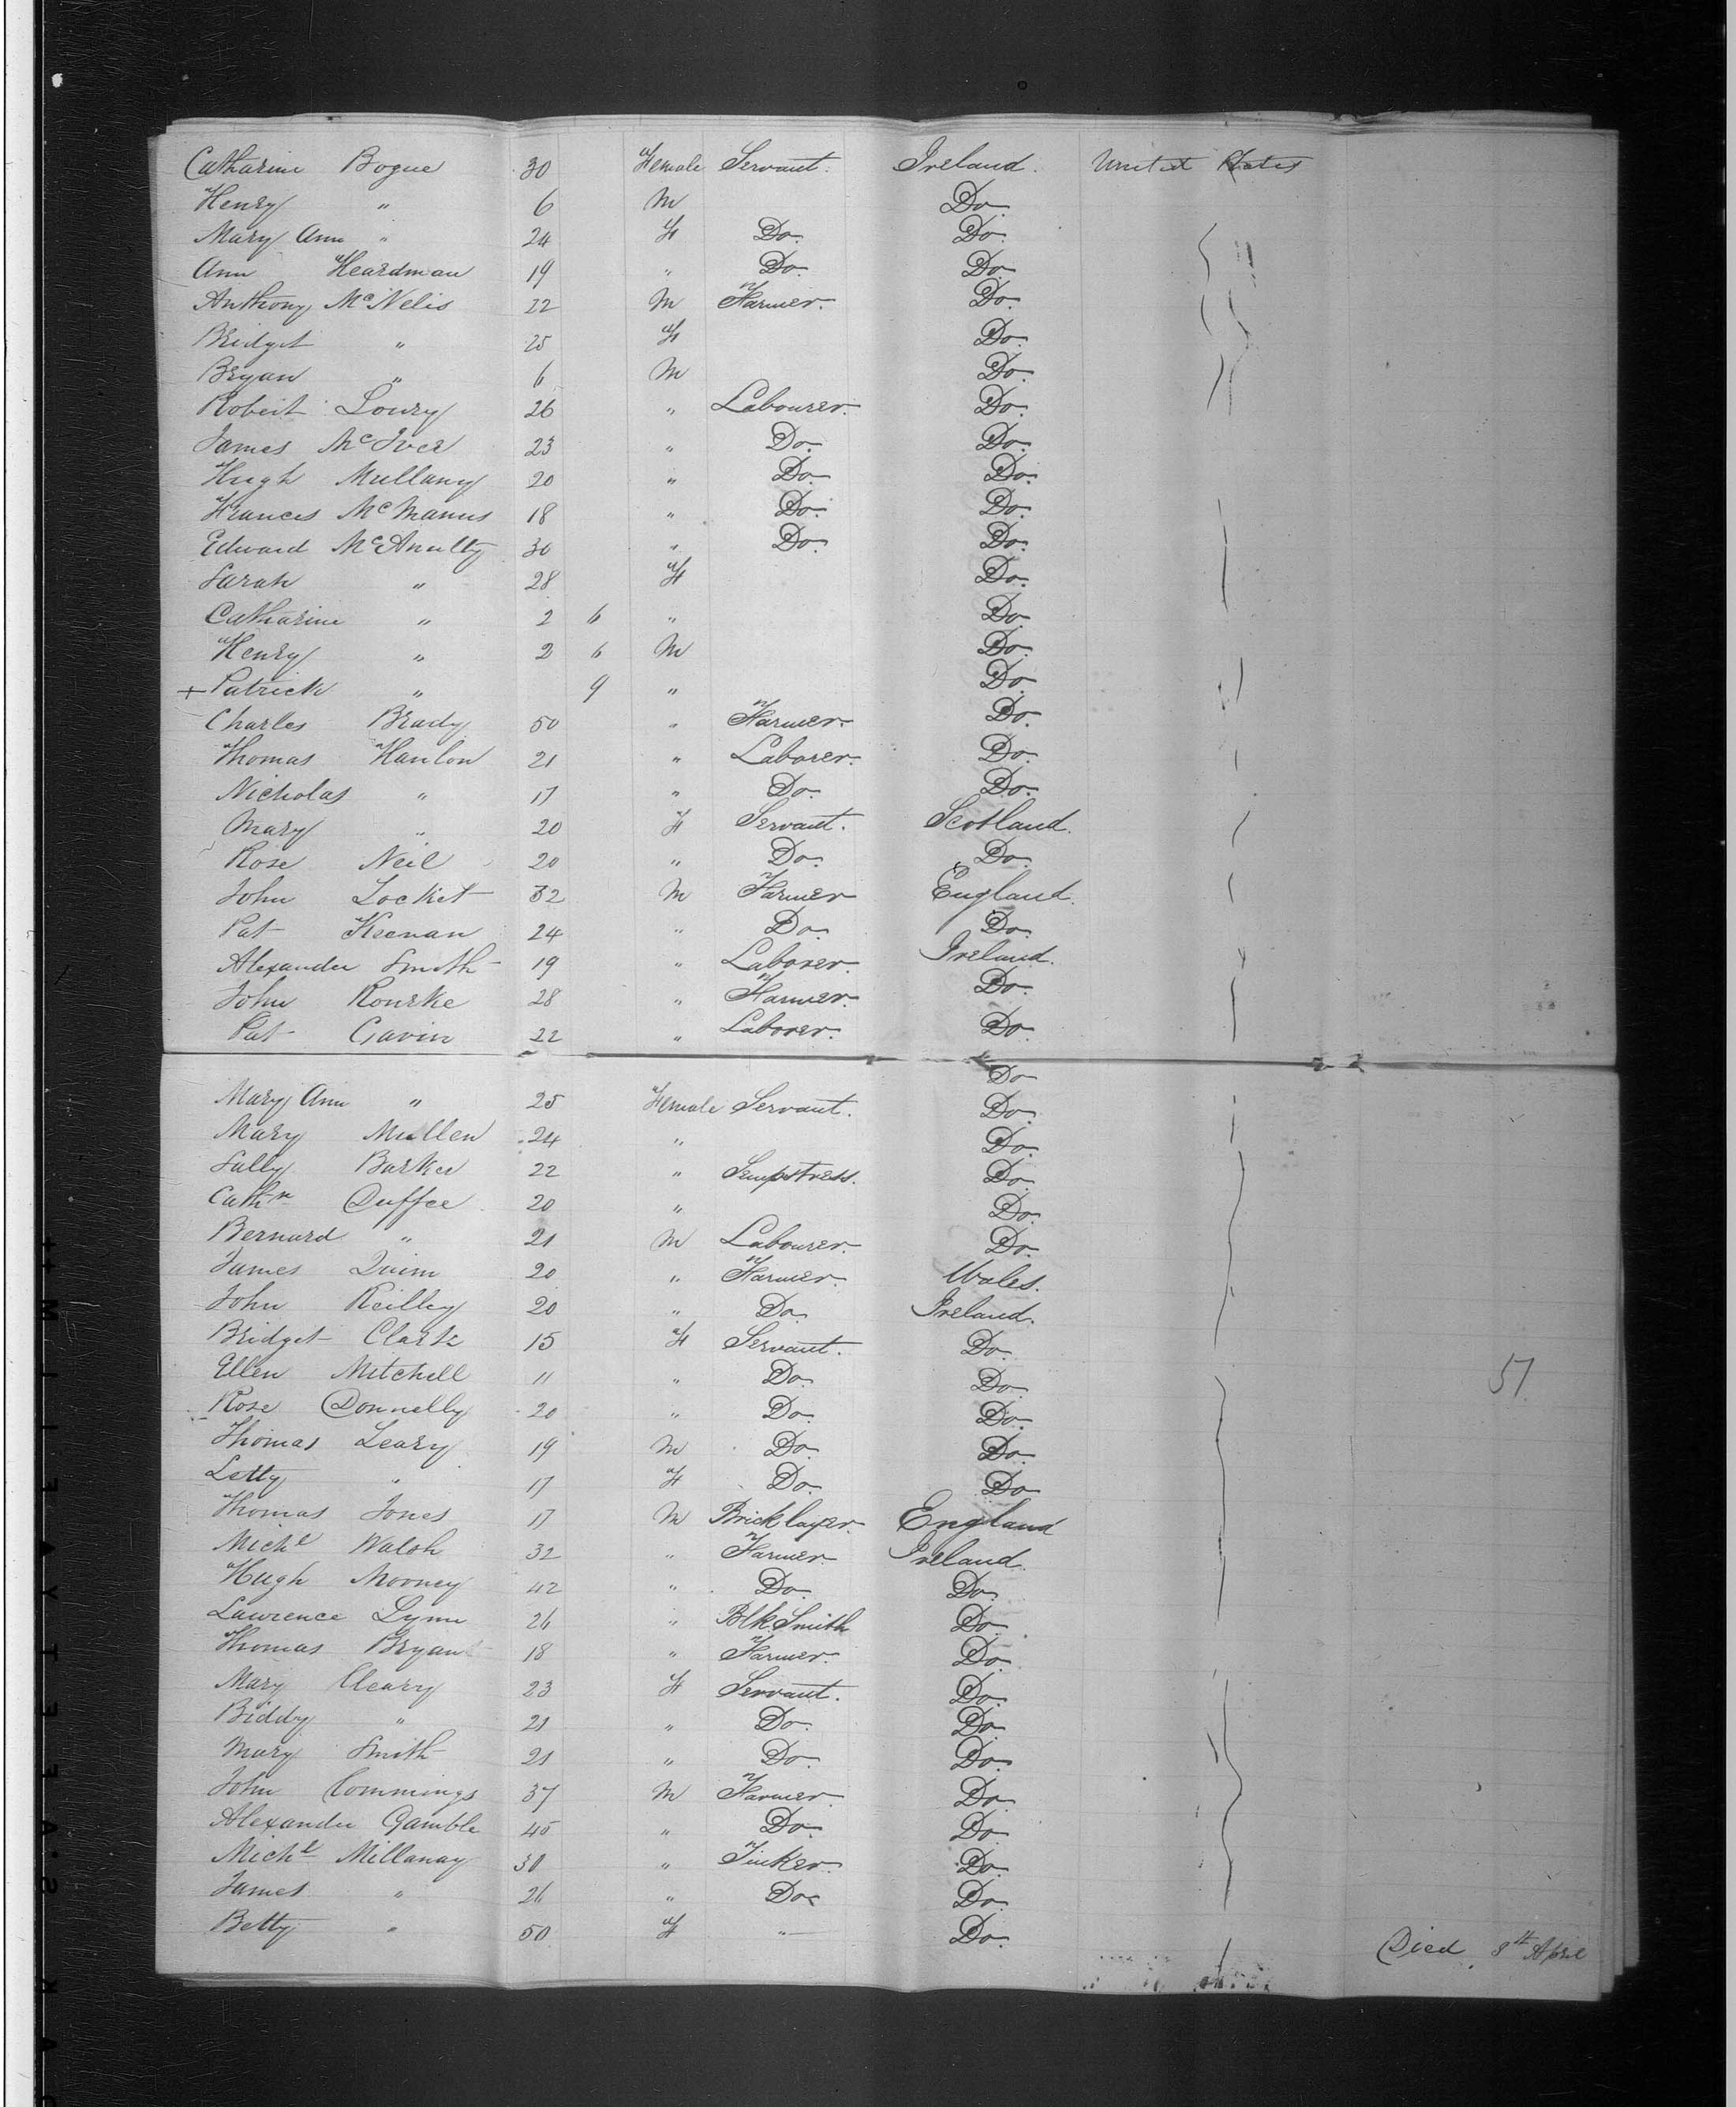 Catharine Bogue 30 Female Servant. Ireland. United States
Henry " 6 M Do.
Mary Ann " 24 F Do. Do.
Ann Heardman 19 " Do. Do.
Anthony McNelis 22 M Farmer. Do.
Bridget " 25 F Do.
Bryan " 6 M Do.
Robert Lowry 26 " Labourer. Do.
James McIver 23 " Do. Do.
Hugh Mullany 20 " Do. Do.
Frances McManus 18 " Do. Do.
Edward McAnulty 30 " Do. Do.
Sarah " 28 F Do.
Catharine " 2 6 " Do.
Henry " 2 6 M Do.
+ Patrick " 9 " Do.
Charles Brady 50 " Farmer. Do.
Thomas Hanlon 21 " Laborer. Do.
Nicholas " 17 " Do. Do.
Mary " 20 F Servant. Scotland.
Rose Neil 20 " Do. Do.
John Locket 32 M Farmer England.
Pat Keenan 24 " Do. Do.
Alexander Smith 19 " Laborer. Ireland.
John Rourke 28 " Farmer. Do.
Pat Gavin 22 " Laborer. Do.
Do
Mary Ann " 25 Female Servant. Do.
Mary Mullen 24 " Do.
Sally Barker 22 " Sempstress. Do.
Cathn Duffee 20 " Do.
Bernard " 21 M Labourer. Do.
James Quinn 20 " Farmer. Wales.
John Reilley 20 " Do. Ireland.
Bridget Clark 15 F Servant. Do.
Ellen Mitchell 11 " Do. Do. 57
Rose Donnelly 20 " Do. Do.
Thomas Leary 19 M Do. Do.
Letty " 17 F Do. Do
Thomas Jones 17 M Bricklayer. England
Michl Walsh 32 " Farmer Ireland.
Hugh Mooney 42 " Do. Do.
Lawrence Lynn 26 " Blk Smith Do.
Thomas Bryan 18 " Farmer. Do.
Mary Cleary 23 F Servant. Do.
Biddy " 21 " Do. Do.
Mary Smith 21 " Do. Do.
John Commings 37 M Farmer. Do.
Alexander Gamble 45 " Do. Do.
Michl Millanay 30 " Tinker. Do.
James " 26 " Do. Do.
Betty " 50 F " Do. Died 8th April